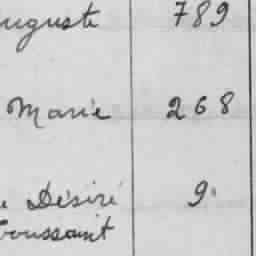 auguste 789
Marie 268
Désiré 9
Toussaint